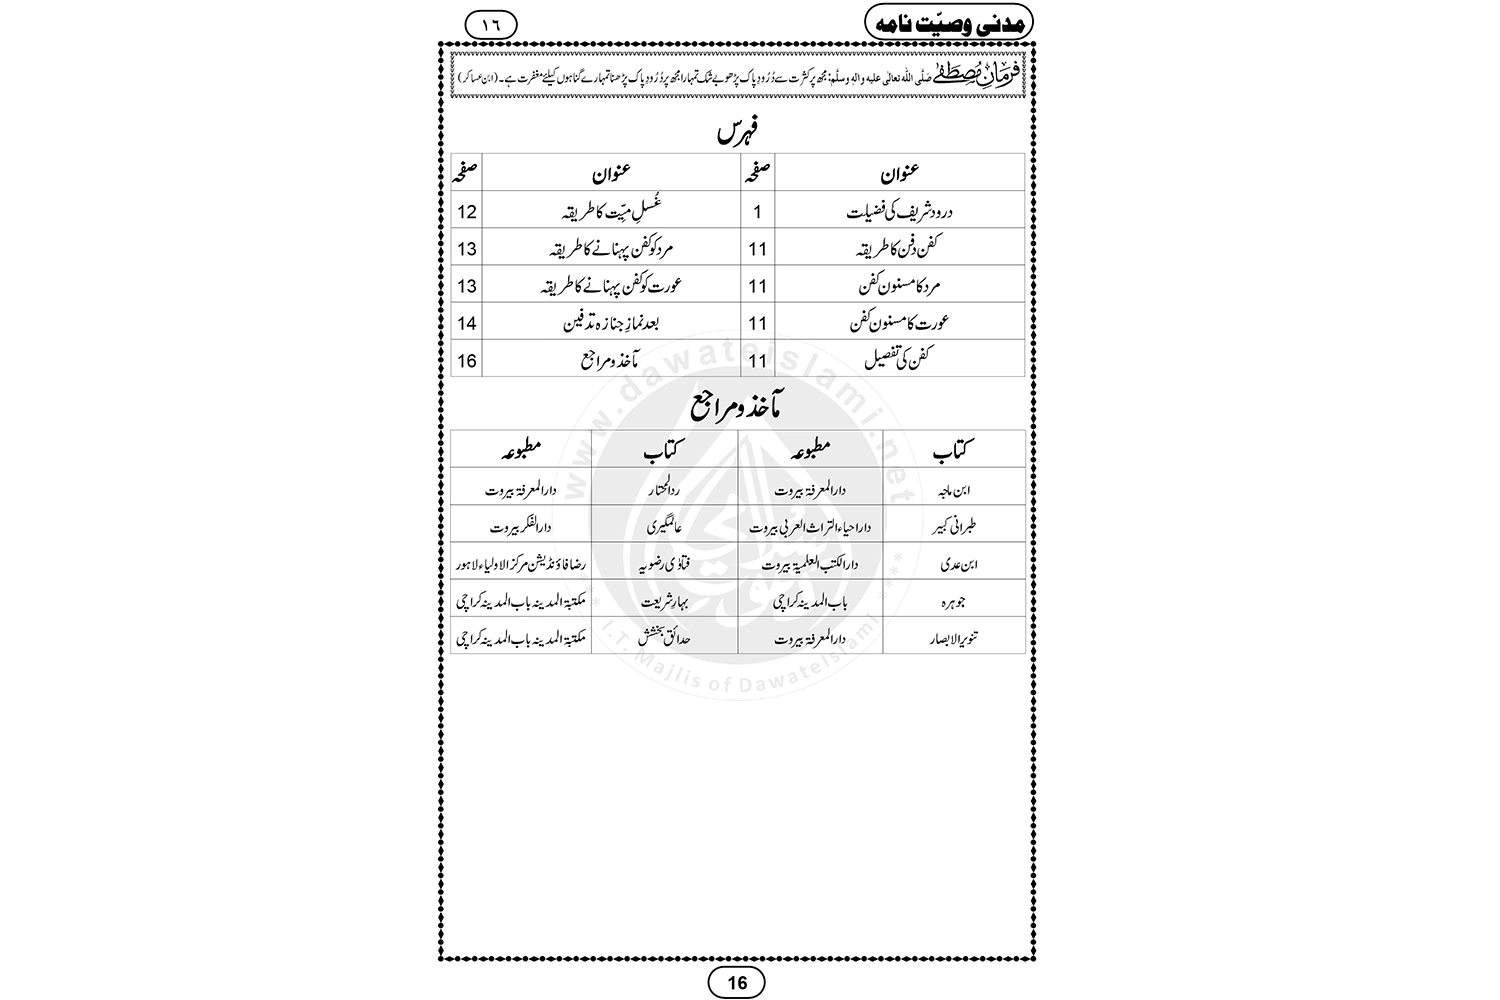 مدنی وصیّت نامہ ١٦
فرمانِ مُصطَفٰے صَلَّی اللہ تعالٰی علیہ والہٖ وسلَّم: مجھ پر کثرت سے دُرُودِ پاک پڑھو بے شک تمہارا مجھ پر دُرُودِ پاک پڑھنا تمہارے گناہوں کیلئے مغفرت ہے۔ (ابن عساکر)
فہرس
عنوان صفحہ عنوان صفحہ
درود شریف کی فضیلت 1 غُسلِ میِّت کا طریقہ 12
کفن دفن کا طریقہ 11 مرد کو کفن پہنانے کا طریقہ 13
مرد کا مسنون کفن 11 عورت کو کفن پہنانے کا طریقہ 13
عورت کا مسنون کفن 11 بعد نمازِ جنازہ تدفین 14
کفن کی تفصیل 11 مآخذ و مراجع 16
مآخذ و مراجع
کتاب مطبوعہ کتاب مطبوعہ
ابن ماجہ دارالمعرفۃ بیروت ردالمحتار دارالمعرفۃ بیروت
طبرانی کبیر داراحیاء التراث العربی بیروت عالمگیری دارالفکر بیروت
ابن عدی دارالکتب العلمیۃ بیروت فتاوٰی رضویہ رضا فاؤنڈیشن مرکز الاولیاء لاہور
جوہرہ باب المدینہ کراچی بہارِ شریعت مکتبۃ المدینہ باب المدینہ کراچی
تنویر الابصار دارالمعرفۃ بیروت حدائق بخشش مکتبۃ المدینہ باب المدینہ کراچی
www.dawateislami.net
I.T. Majlis of DawateIslami
16